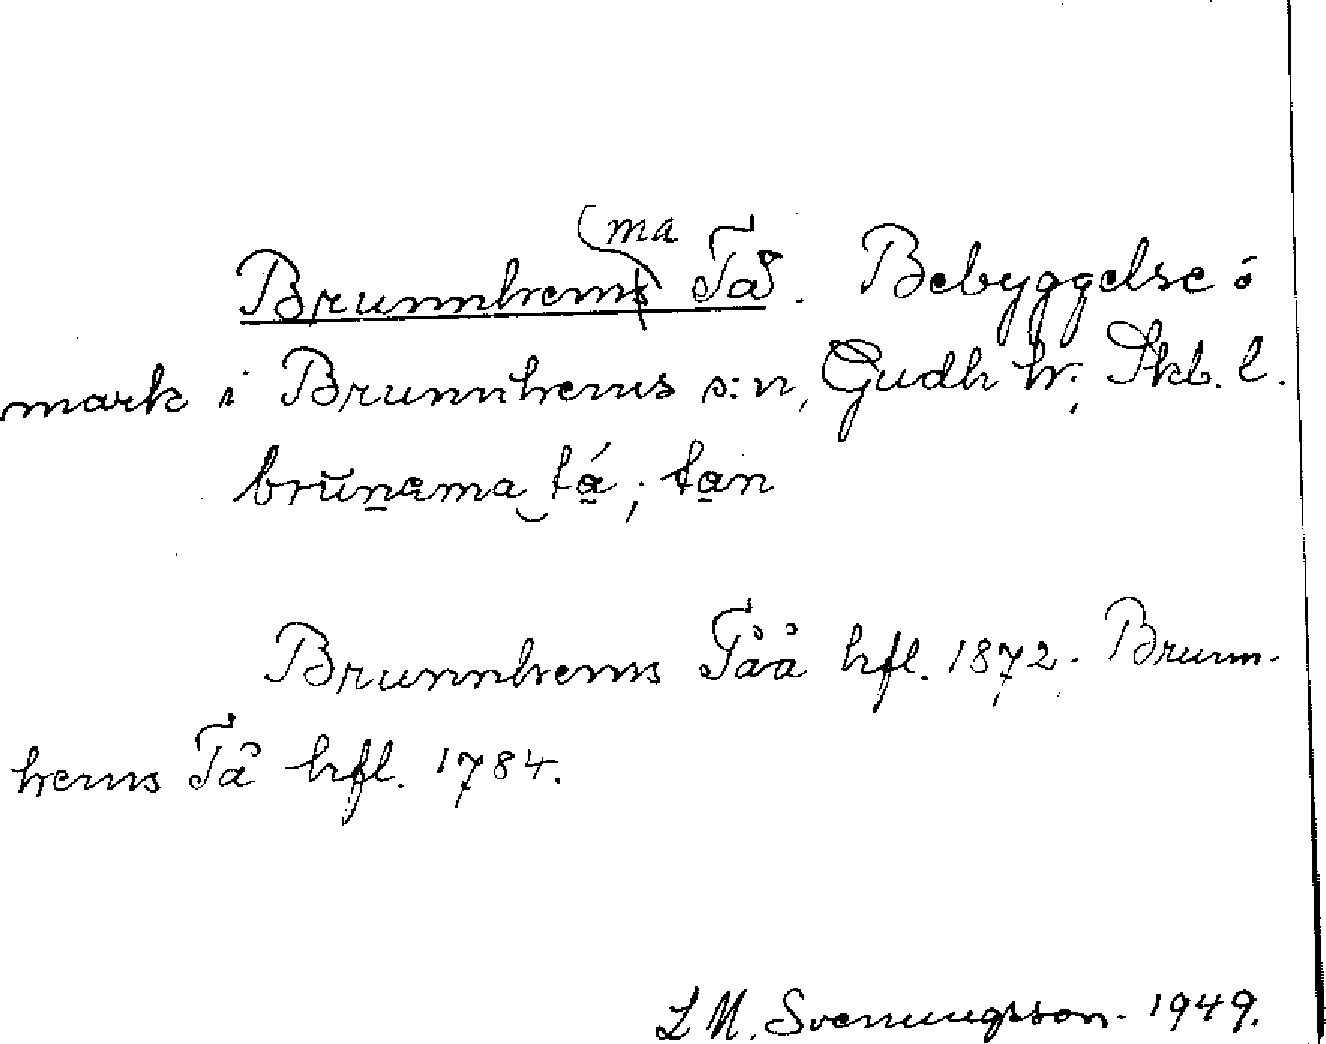 ma
Brunnhems Tå. Bebyggelse ó
mark i Brunnhems s:n, Gudh hr; Skb. l.
brŭnama tá; tan
Brunnhems Tåå hfl. 1872. Brunn-
hems Tå hfl. 1784.
L M. Svenungsson. 1949.